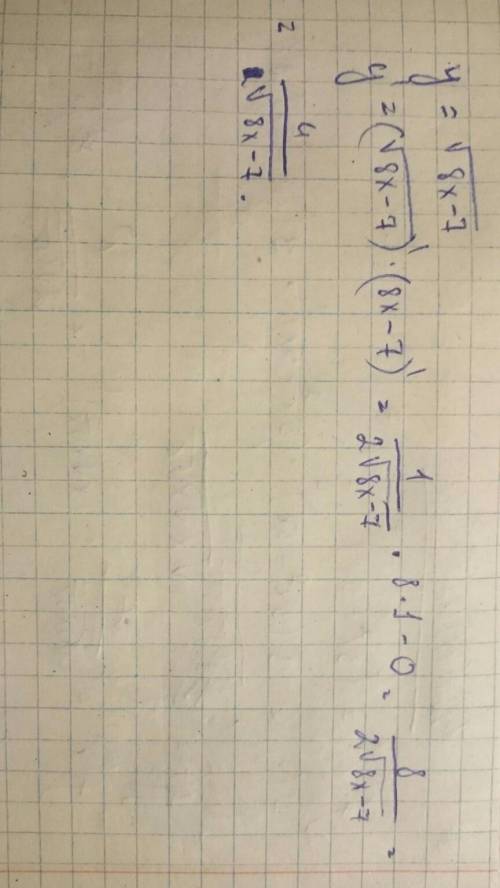 y = √8x-7
y = (√8x-7)' · (8x-7)' = 1/2√8x-7 · 8·1-0 = 8/2√8x-7 =
= 4/√8x-7.